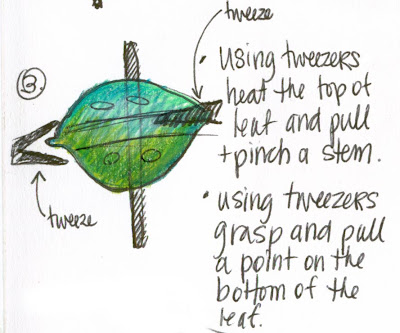 tweeze
3.
• Using tweezers
heat the top of
leaf and pull
+ pinch a stem.
tweeze
• using tweezers
grasp and pull
a point on the
bottom of the
leaf.